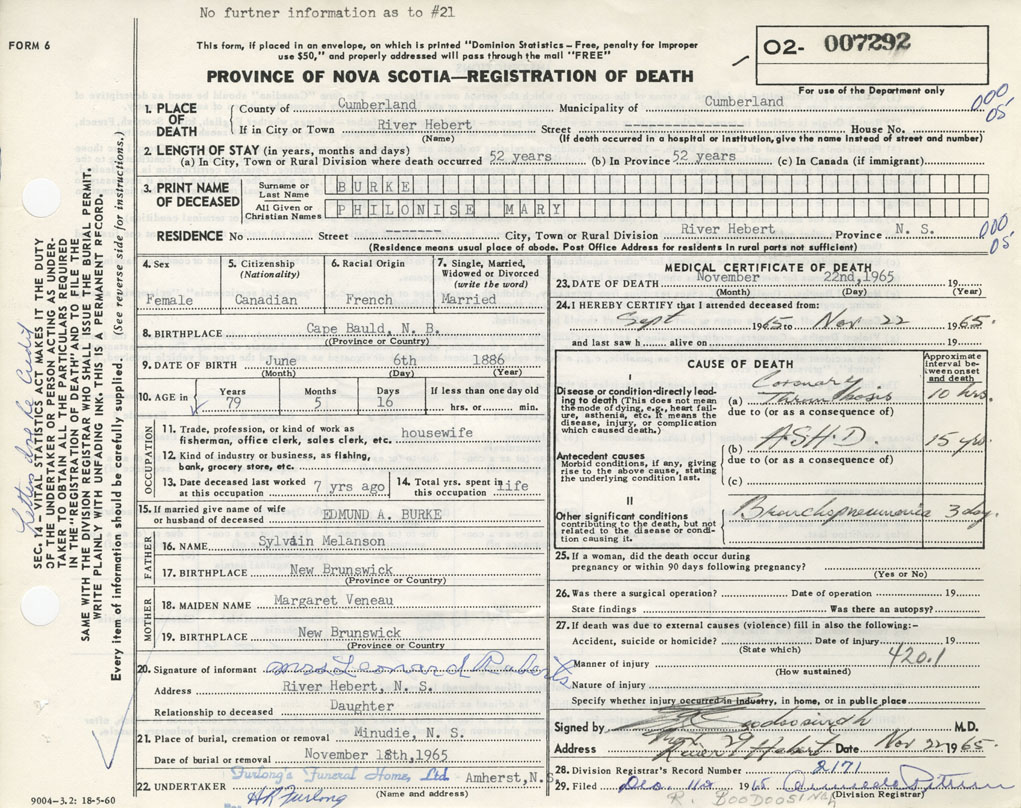 No furtner information as to #21
FORM 6
This form, if placed in an envelope, on which is printed "Dominion Statistics – Free, penalty for improper
use $50," and properly addressed will pass through the mail "FREE"
O2- 007292
PROVINCE OF NOVA SCOTIA—REGISTRATION OF DEATH
For use of the Department only
000
05
1. PLACE OF DEATH
County of Cumberland Municipality of Cumberland
If in City or Town River Hebert Street ---------------- House No.
(Name) (If death occurred in a hospital or institution, give the name instead of street and number)
2. LENGTH OF STAY (in years, months and days)
(a) In City, Town or Rural Division where death occurred 52 years (b) In Province 52 years (c) In Canada (if immigrant)
3. PRINT NAME OF DECEASED
Surname or Last Name BURKE
All Given or Christian Names PHILONISE MARY
RESIDENCE No Street ------- City, Town or Rural Division River Hebert Province N. S.
(Residence means usual place of abode. Post Office Address for residents in rural parts not sufficient)
000
05
4. Sex
Female
5. Citizenship
(Nationality)
Canadian
6. Racial Origin
French
7. Single, Married,
Widowed or Divorced
(write the word)
Married
8. BIRTHPLACE Cape Bauld, N. B.
((Province or Country)
9. DATE OF BIRTH June 6th 1886
(Month) (Day) (Year)
10. AGE in
Years Months Days If less than one day old
79 5 16 hrs. or min.
OCCUPATION
11. Trade, profession, or kind of work as
fisherman, office clerk, sales clerk, etc. housewife
12. Kind of industry or business, as fishing,
bank, grocery store, etc.
13. Date deceased last worked
at this occupation 7 yrs ago
14. Total yrs. spent in
this occupation life
15. If married give name of wife
or husband of deceased EDMUND A. BURKE
FATHER
16. NAME Sylvain Melanson
17. BIRTHPLACE New Brunswick
(Province or Country)
MOTHER
18. MAIDEN NAME Margaret Veneau
19. BIRTHPLACE New Brunswick
(Province or Country
20. Signature of informant Mrs Leonard Roberts
Address River Hebert, N. S.
Relationship to deceased Daughter
21. Place of burial, cremation or removal Minudie, N. S.
Date of burial or removal November 18th,1965
Furlong's Funeral Home, Ltd. Amherst, N.S.
22. UNDERTAKER HR Furlong
(Name and address)
9004–3.2: 18-5-60
MEDICAL CERTIFICATE OF DEATH
23. DATE OF DEATH November 22nd,1965 19
(Month) (Day) (Year)
24. I HEREBY CERTIFY that I attended deceased from:
Sept 1965 to Nov 22 1965.
and last saw h alive on 19
CAUSE OF DEATH
Approximate
interval be-
tween onset
and death
I
Disease or condition directly lead-
ing to death (This does not mean
the mode of dying, e.g., heart fail-
ure, asthenia, etc. It means the
disease, injury, or complication
which caused death.)
(a) Coronary
Thrombosis 10 hrs.
due to (or as a consequence of)
Antecedent causes
Morbid conditions, if any, giving
rise to the above cause, stating
the underlying condition last.
(b) A.S.H.D. 15 yrs.
due to (or as a consequence of)
(c)
II
Other significant conditions
contributing to the death, but not
related to the disease or condi-
tion causing it.
Bronchopneumonia 3 day.
25. If a woman, did the death occur during
pregnancy or within 90 days following pregnancy?
(Yes or No)
26. Was there a surgical operation? Date of operation 19
State findings Was there an autopsy?
27. If death was due to external causes (violence) fill in also the following:–
Accident, suicide or homicide? Date of injury 19
(State which)
420.1
Manner of injury
(How sustained)
Nature of injury
Specify whether injury occurred in industry, in home, or in public place
Signed by R Boodoosingh M.D.
Address Box 29
River Hebert Date Nov 22 1965.
28. Division Registrar's Record Number 2171
29. Filed Dec 1965
(Division Registrar)
R. BOODOOSINGH
SEC. 14 – VITAL STATISTICS ACT MAKES IT THE DUTY
OF THE UNDERTAKER OR PERSON ACTING AS UNDER-
TAKER TO OBTAIN ALL THE PARTICULARS REQUIRED
IN THE "REGISTRATION OF DEATH" AND TO FILE THE
SAME WITH THE DIVISION REGISTRAR WHO SHALL ISSUE THE BURIAL PERMIT.
WRITE PLAINLY WITH UNFADING INK. THIS IS A PERMANENT RECORD.
Every item of information should be carefully supplied. (See reverse side for instructions.)